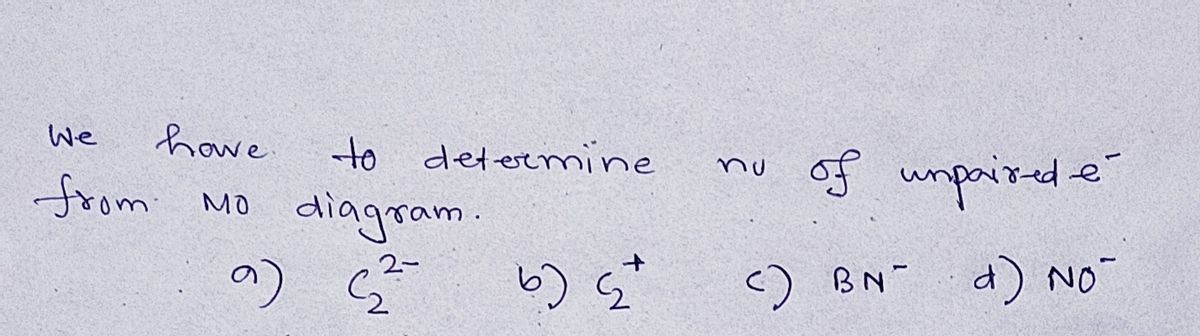 We have to determine no of unpaired e⁻
from MO diagram.
a) C₂²⁻ b) C₂⁺ c) BN⁻ d) NO⁻